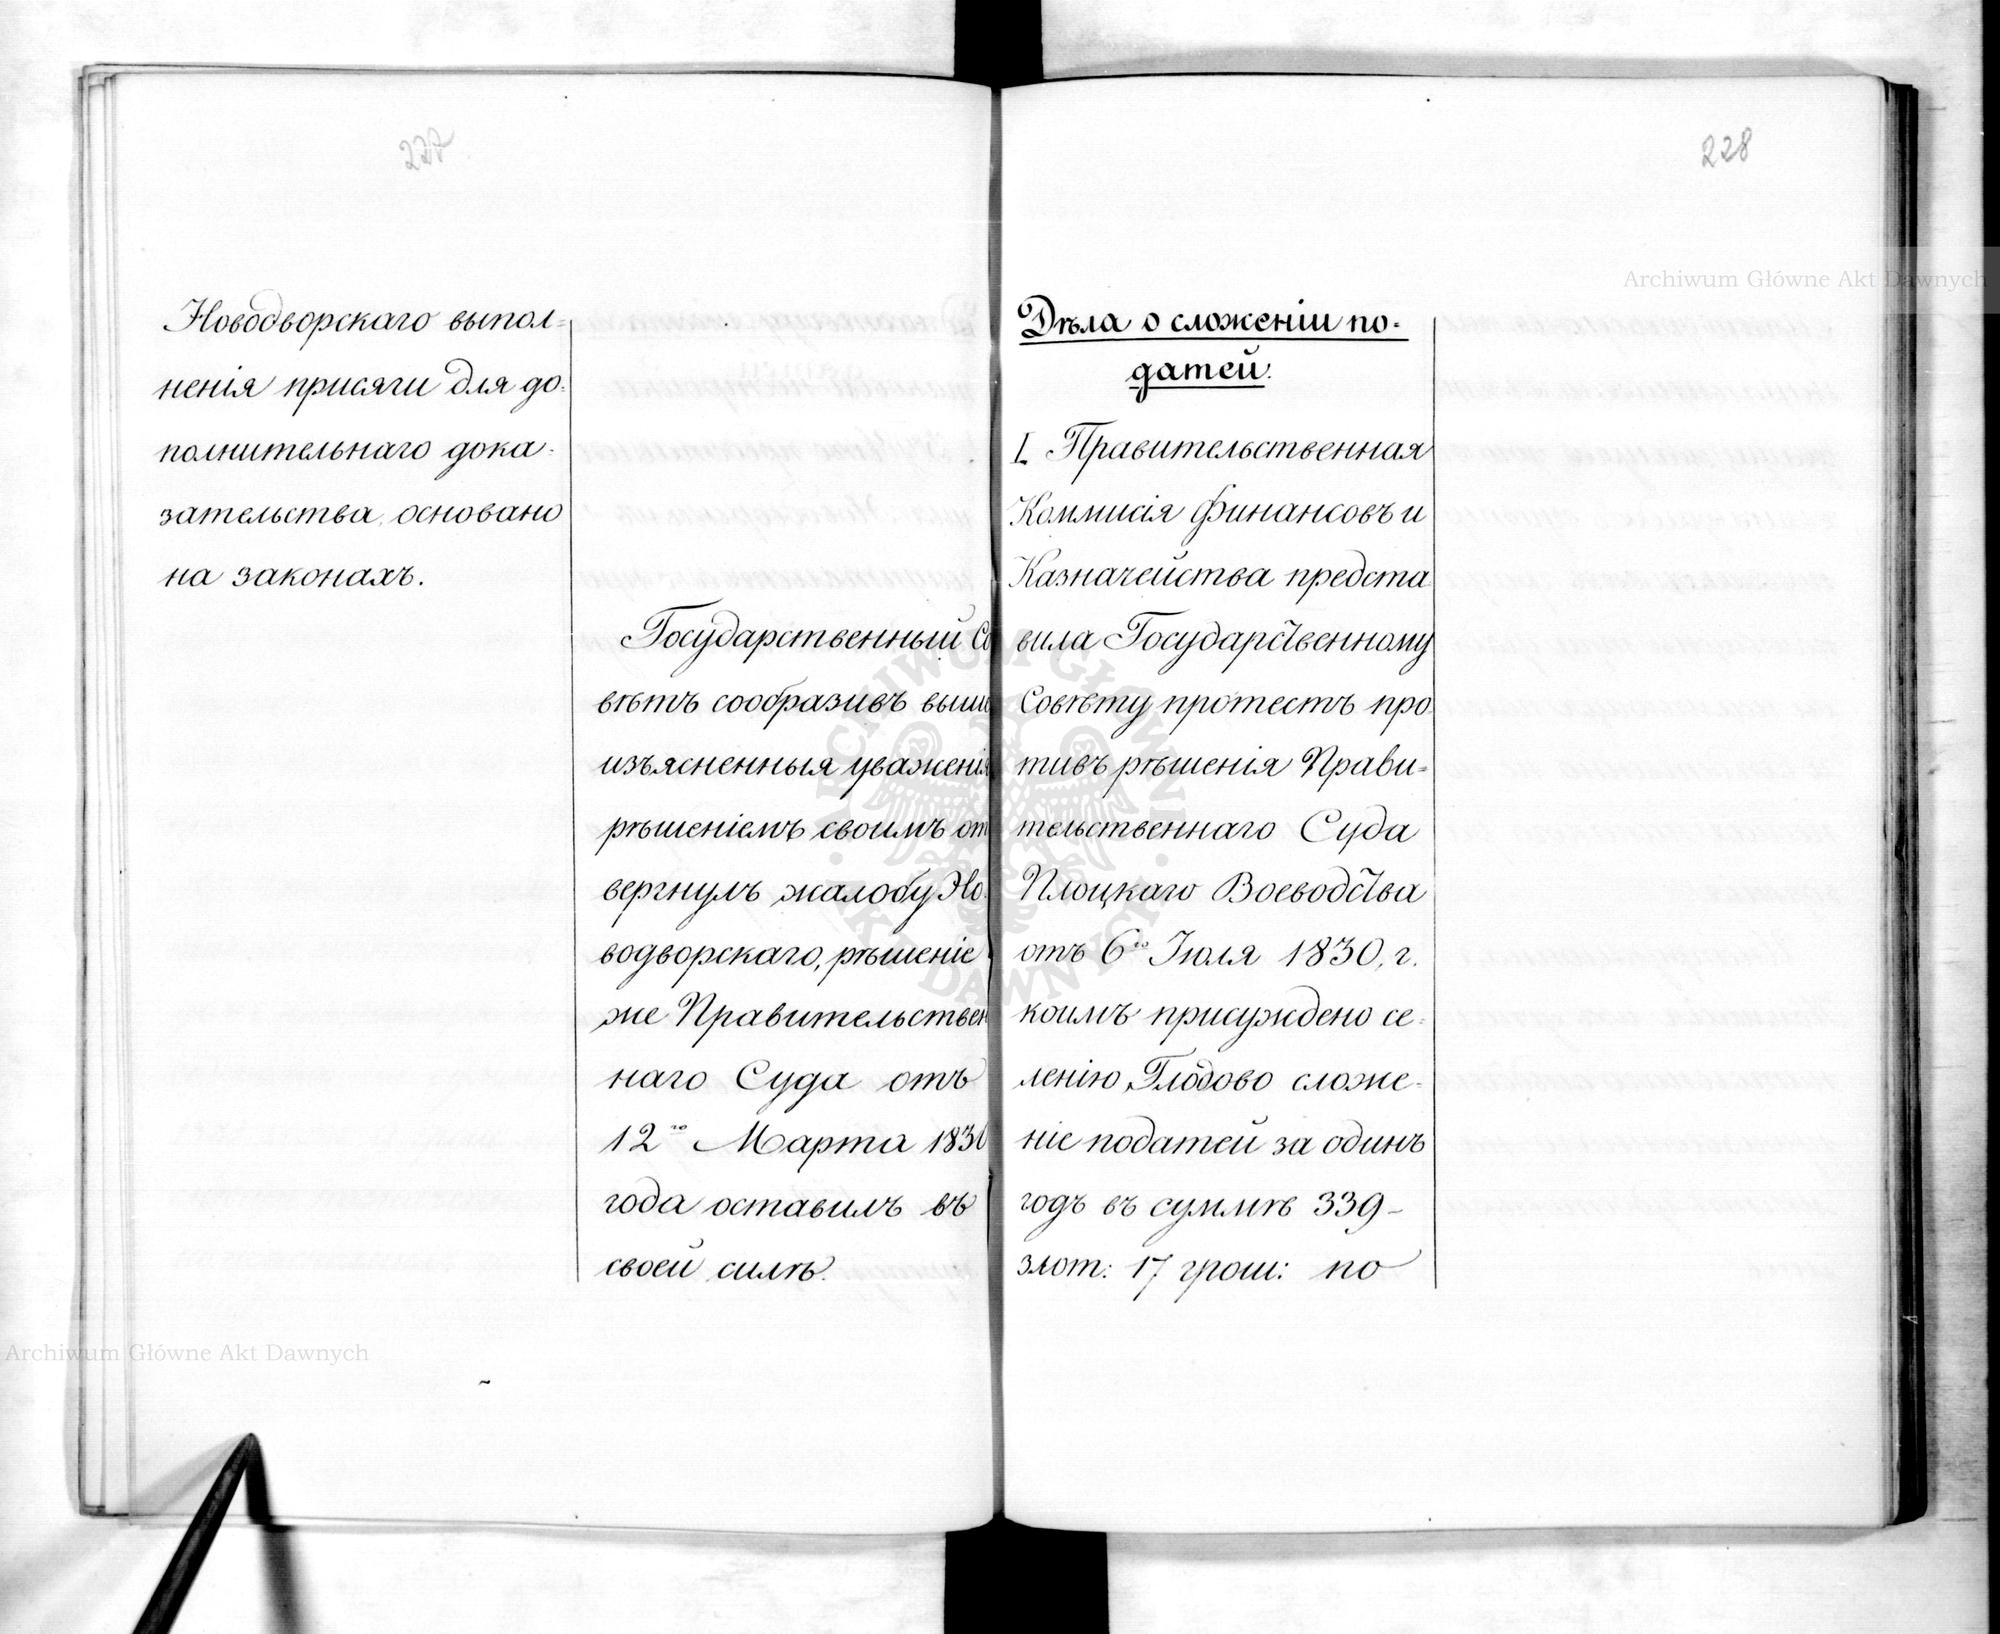 227
Новодворскаго выпол-
ненія присяги для до-
полнительнаго дока-
зательства, основано
на законахъ.
Государственный Со
вѣтъ сообразивъ выше
изъясненныя уваженія
рѣшеніемъ своимъ от
вергнулъ жалобу Но-
водворскаго, рѣшеніе
же Правительствен
наго Суда отъ
12го Марта 1830
года оставилъ въ
своей силѣ.
228
Дѣла о сложеніи по-
датей.
I. Правительственная
Коммисія Финансовъ и
Казначейства предста
вила Государственному
Совѣту протестъ про
тивъ рѣшенія Прави-
тельственнаго Суда
Плоцкаго Воеводства
отъ 6го Іюля 1830, г.
коимъ присуждено се-
ленію Глодово сложе-
ніе податей за одинъ
годъ въ суммѣ 339-
злот: 17 грош: по
Archiwum Główne Akt Dawnych
Archiwum Główne Akt Dawnych
ARCHIWUM GŁÓWNE AKT DAWNYCH